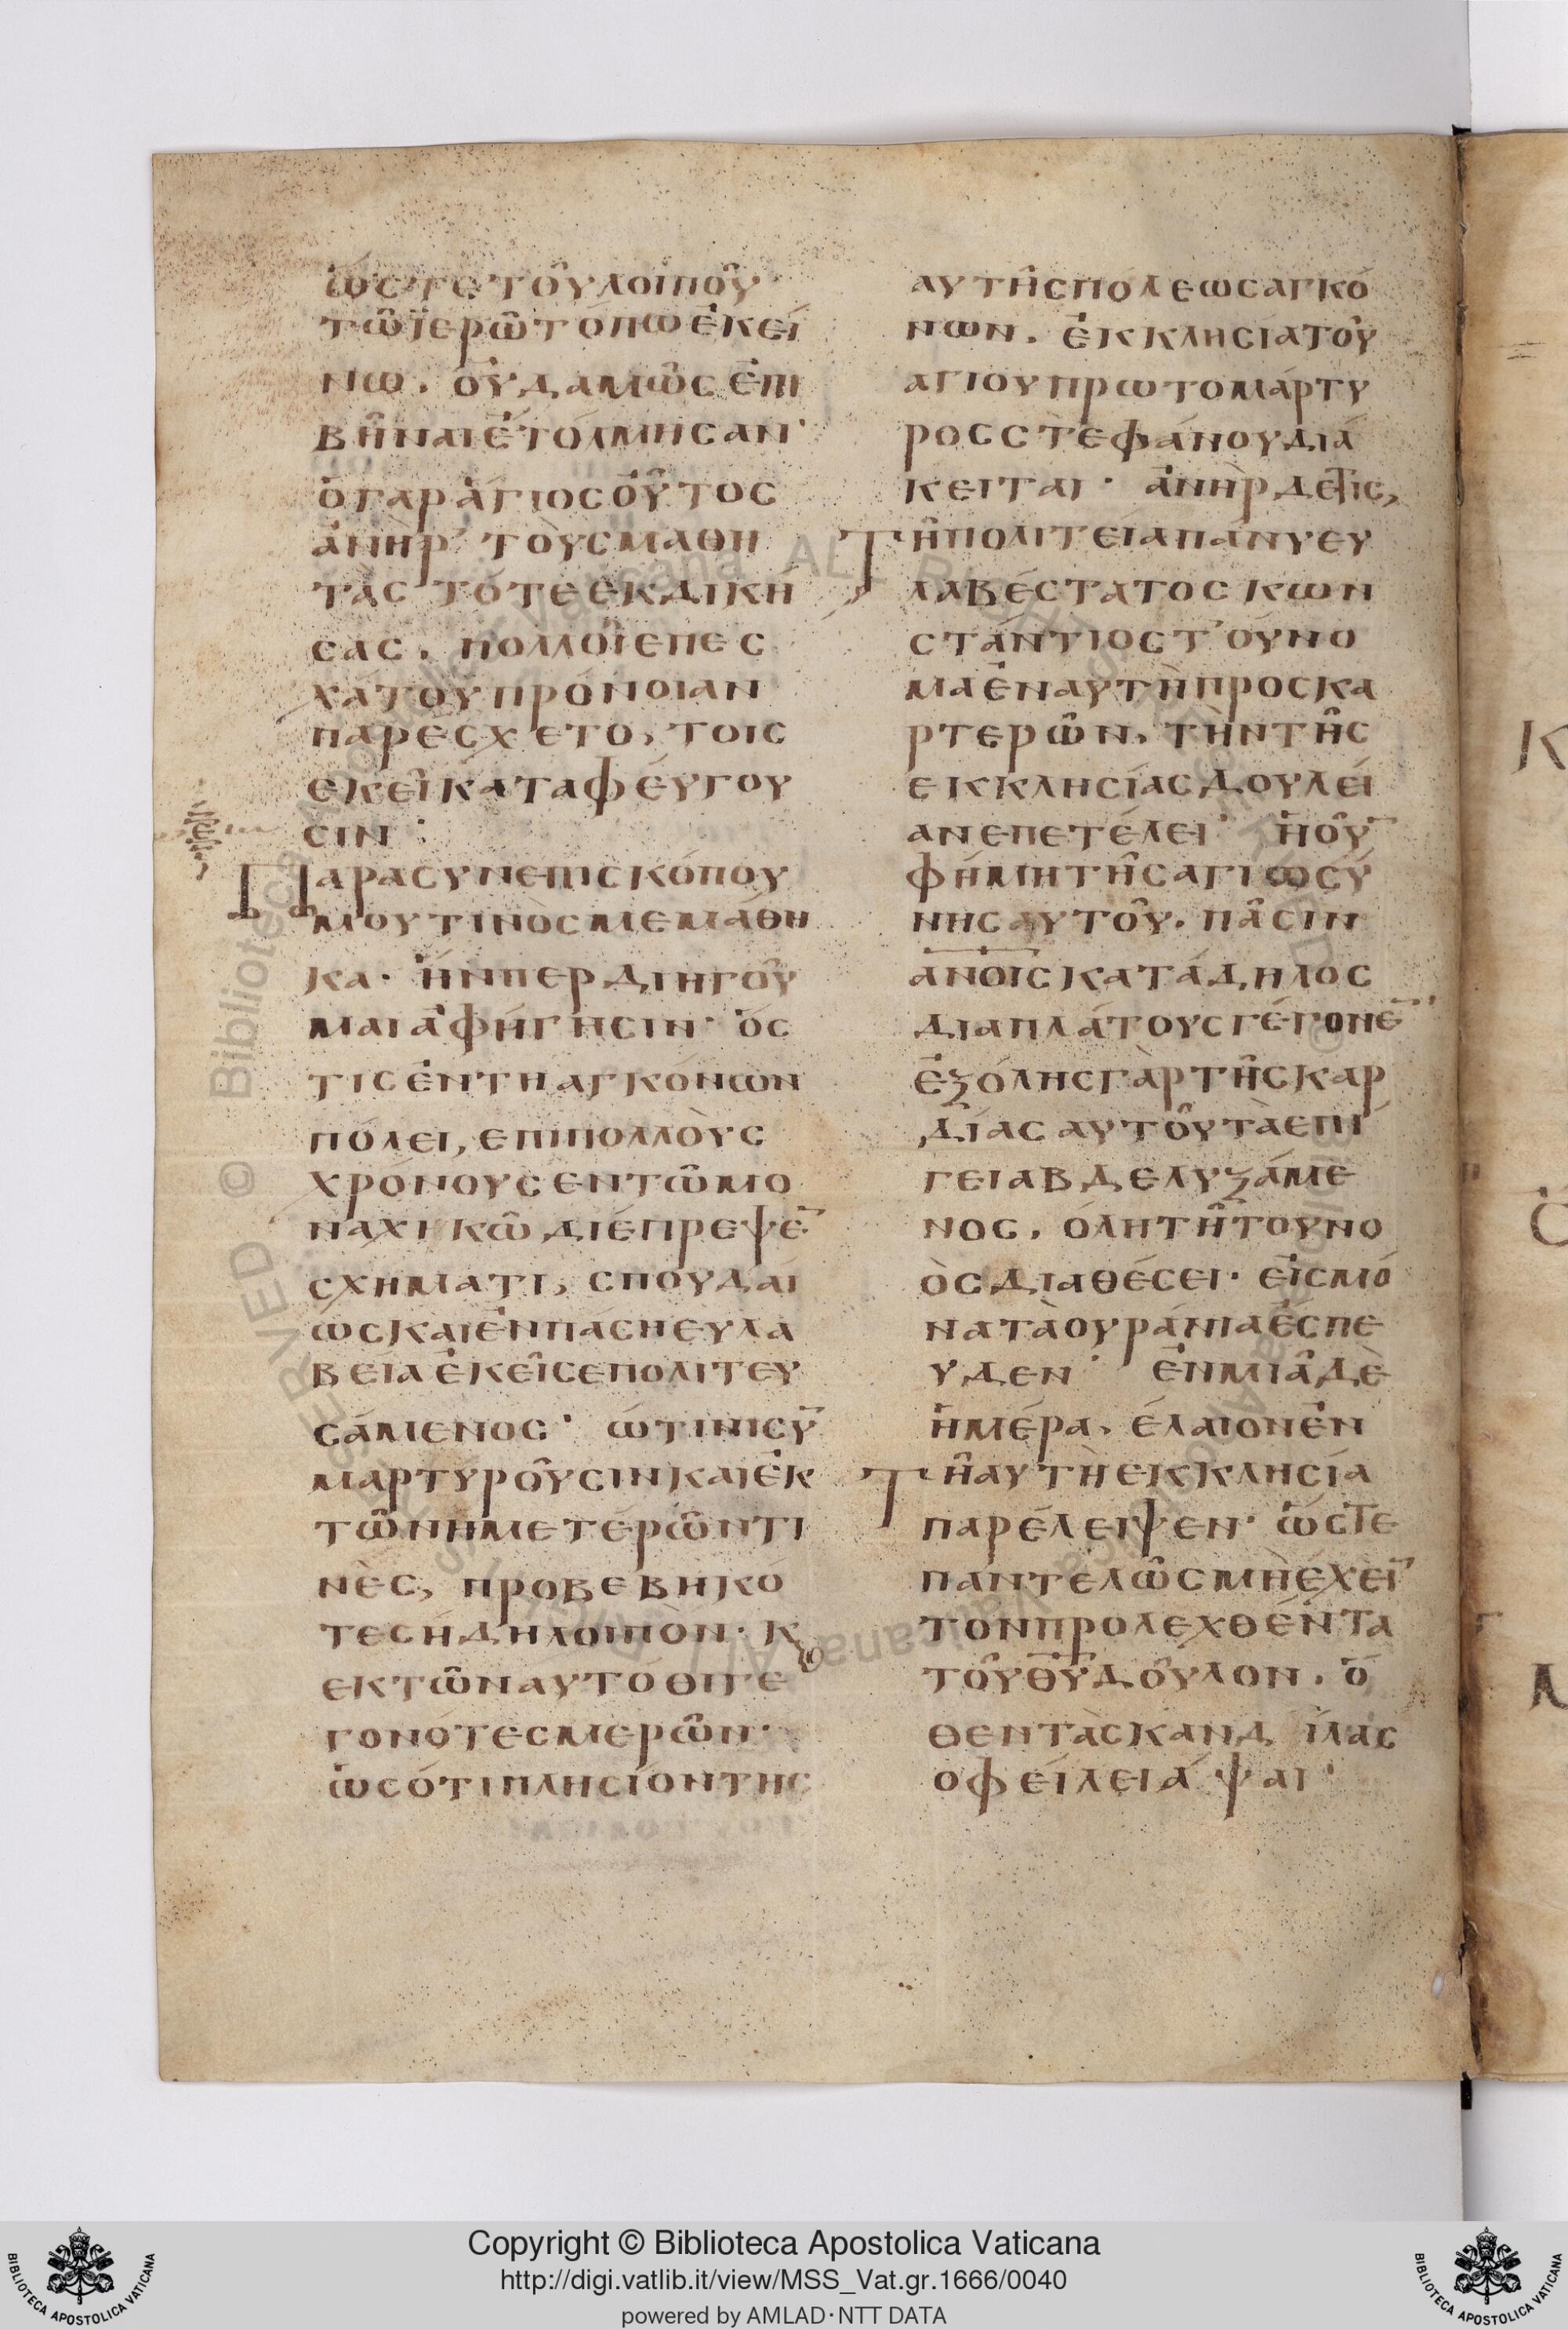 ὥστε τοῦ λοιποῦ
τῶ ϊερῶ τόπω ἐκεί
νω. οὐδαμῶς ἐπι
βῆναι ἐτόλμησαν·
ὁ γαρ ἅγιος οὗτος
ἀνὴρ τοὺς μαθη
τὰς τότε εκδική
σας. πολλοῖ επ εσ
χάτου πρόνοιαν
παρέσχετο, τοις
εκεῖ καταφέυγου
σιν·
Παρα συνεπισκόπου
μου τινὸς μεμάθη
κα· ἥνπερ διηγοῦ
μαι ἀφήγησιν· ὅς
τις ἐν τη αγκόνων
πόλει, επι πολλοὺς
χρόνους εν τῶ μο
ναχικῶ διέπρεψε̄
σχηματι, σπουδαί
ως και ἐν πάση ευλα
βεία ἐκεῖσε πολιτευ
σάμενος· ώτινι σῡ
μαρτυροῦσιν και ἐκ
τῶν ημετέρῶν τι
νὲς, προβεβηκό
τες ήδη λοιπὸν· κ
εκ τῶν αυτόθι γε
γονότες μερῶν·
ὡς ότι πλησίον της
αυτῆς πόλεως αγκό
νων. ἐκκλησία τοῦ
αγιου πρωτομάρτυ
ρος στεφάνου διά
κειται· ἀνὴρ δέ τις,
τῆ πολιτεία πάνυ ευ
λαβέστατος κων
στάντιος τ' ούνο
μα ἐν αυτὴ προσκα
ρτερῶν, τὴν τῆς
εκκλησίας δουλεί
αν επετέλει· ἡ οῦ̄
φήμη τῆς αγιωσύ
νης αυτοῦ. πᾶσιν
ανοις κατάδηλος
δια πλάτους γέγονε̄·
ἐξ όλης γὰρ τῆς καρ
δίας αυτοῦ τὰ επί
γεια βδελυξάμε
νος, όλη τῆ τοῦ νο
ὸς διαθέσει· εἰς μό
να τὰ ουράνια ἔσπε
υδεν· ἐν μιᾶ δὲ
ἡμέρα, έλαιον ἐν
τῆ αυτὴ εκκλησία
παρέλειψεν· ὥστε
παντελῶς μὴ έχεῑ
τον προλεχθέντα
τοῦ θῦ δοῦλον. ὅ
θεν τὰς κανδίλας
οφείλει άψαι·
Copyright © Biblioteca Apostolica Vaticana
http://digi.vatlib.it/view/MSS_Vat.gr.1666/0040
powered by AMLAD·NTT DATA